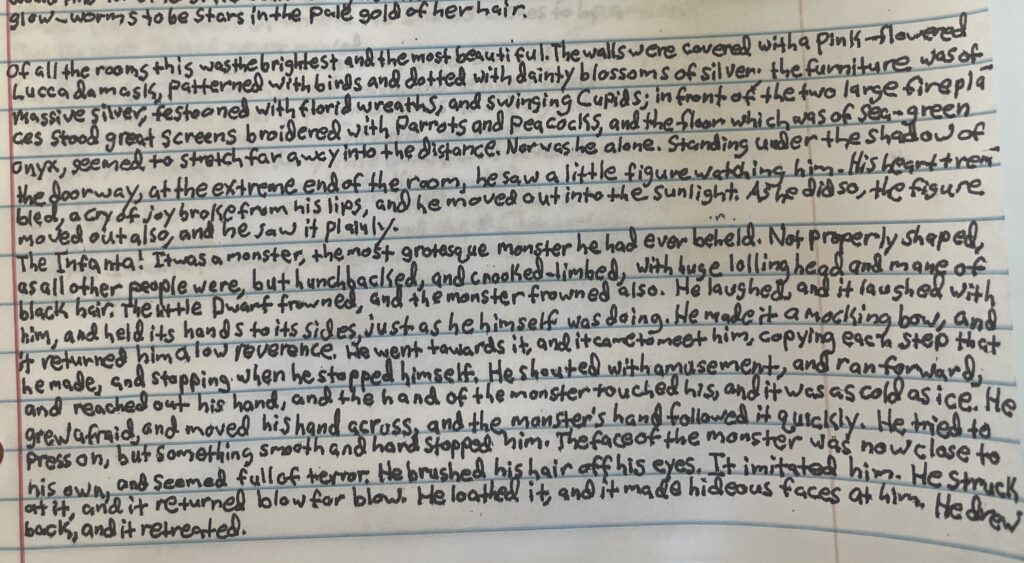 glow-worms to be stars in the pale gold of her hair.
Of all the rooms this was the brightest and the most beautiful. The walls were covered with a pink-flowered
Lucca damask, patterned with birds and dotted with dainty blossoms of silver; the furniture was of
massive silver, festooned with florid wreaths, and swinging Cupids; in front of the two large firepla-
ces stood great screens broidered with Parrots and Peacocks, and the floor which was of sea-green
onyx, seemed to stretch far away into the distance. Nor was he alone. Standing under the shadow of
the doorway, at the extreme end of the room, he saw a little figure watching him. His heart trem-
bled, a cry of joy broke from his lips, and he moved out into the sunlight. As he did so, the figure
moved out also, and he saw it plainly.
The Infanta! It was a monster, the most grotesque monster he had ever beheld. Not properly shaped,
as all other people were, but hunchbacked, and crooked-limbed, with huge lolling head and mane of
black hair. The little Dwarf frowned, and the monster frowned also. He laughed, and it laughed with
him, and held its hands to its sides, just as he himself was doing. He made it a mocking bow, and
it returned him a low reverence. He went towards it, and it came to meet him, copying each step that
he made, and stopping when he stopped himself. He shouted with amusement, and ran forward,
and reached out his hand, and the hand of the monster touched his, and it was as cold as ice. He
grew afraid, and moved his hand across, and the monster's hand followed it quickly. He tried to
press on, but something smooth and hard stopped him. The face of the monster was now close to
his own, and seemed full of terror. He brushed his hair off his eyes. It imitated him. He struck
at it, and it returned blow for blow. He loathed it, and it made hideous faces at him. He drew
back, and it retreated.